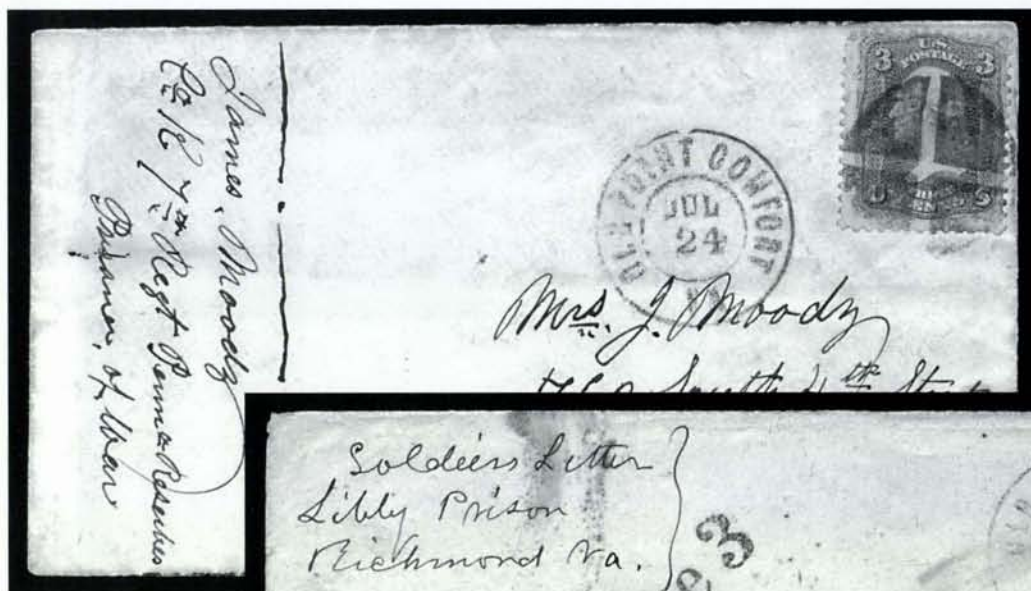 James, Moody
Co. K 7th Regt Penna Reserves
Prisoner, of War
3 U.S. 3
POSTAGE
OLD POINT COMFORT
JUL
24
Mrs. J. Moody
South 4th Street
Soldiers Letter
Libby Prison
Richmond Va.
3